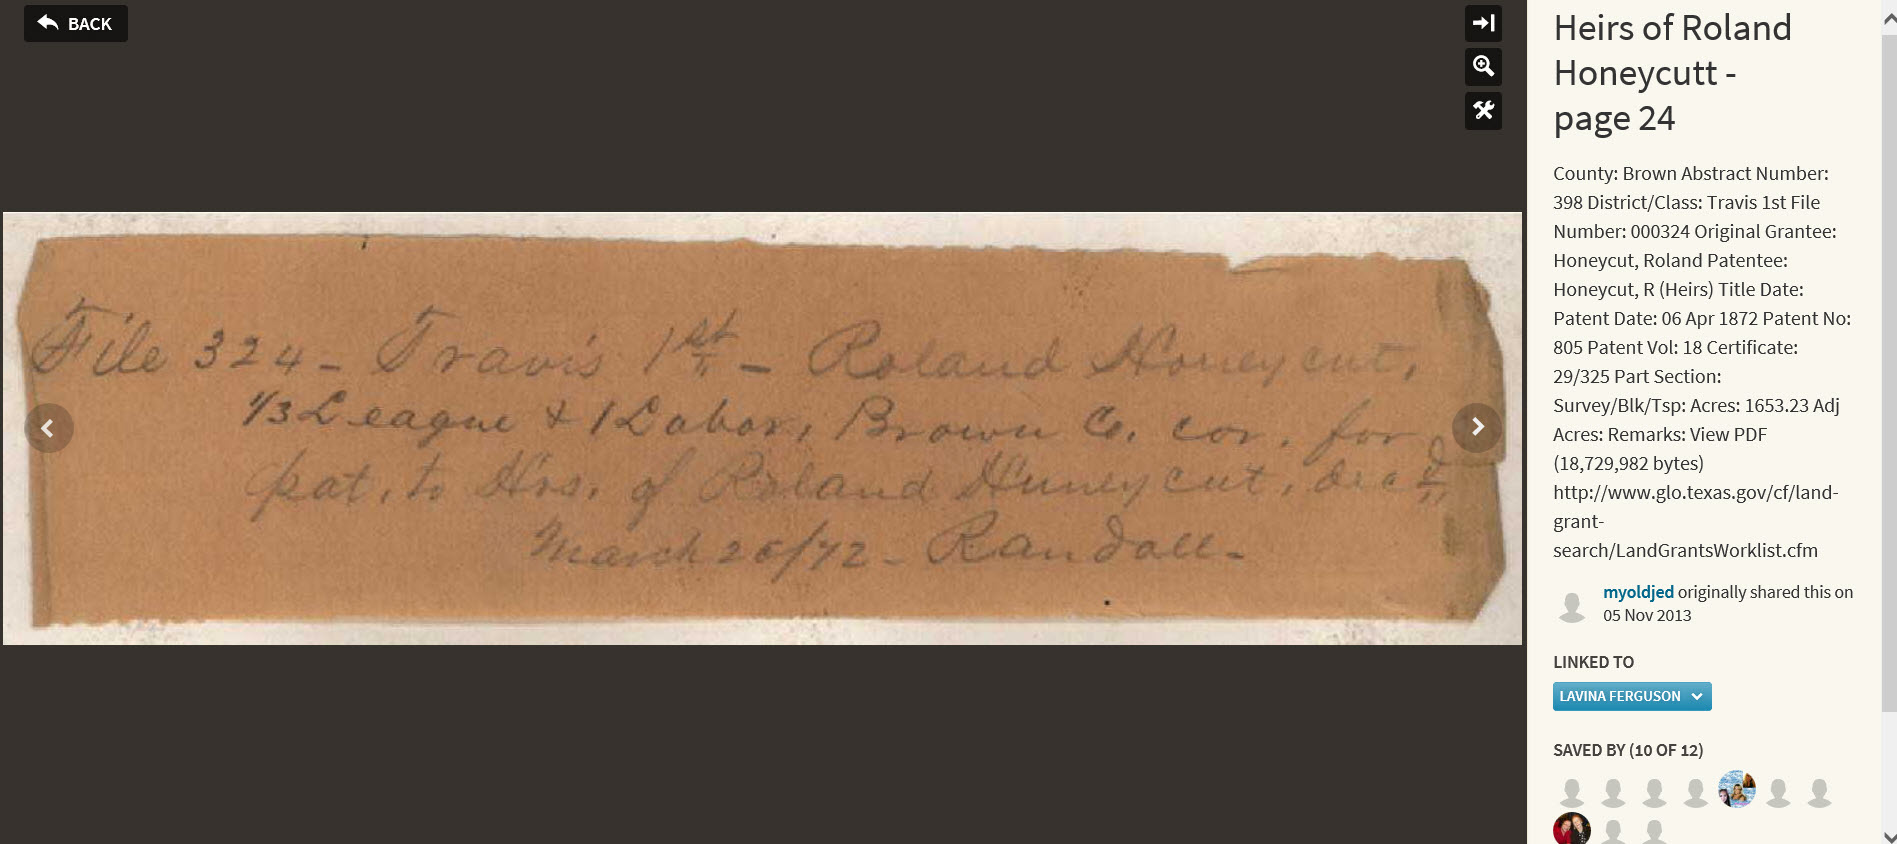 BACK
File 324 - Travis 1st - Roland Honeycut,
1/3 League & 1 Labor, Brown Co. cor. for
pat. to Hrs. of Roland Huneycut, dec'd
March 26/72 - Randall -
Heirs of Roland
Honeycutt -
page 24
County: Brown Abstract Number:
398 District/Class: Travis 1st File
Number: 000324 Original Grantee:
Honeycut, Roland Patentee:
Honeycut, R (Heirs) Title Date:
Patent Date: 06 Apr 1872 Patent No:
805 Patent Vol: 18 Certificate:
29/325 Part Section:
Survey/Blk/Tsp: Acres: 1653.23 Adj
Acres: Remarks: View PDF
(18,729,982 bytes)
http://www.glo.texas.gov/cf/land-
grant-
search/LandGrantsWorklist.cfm
myoldjed originally shared this on
05 Nov 2013
LINKED TO
LAVINA FERGUSON
SAVED BY (10 OF 12)